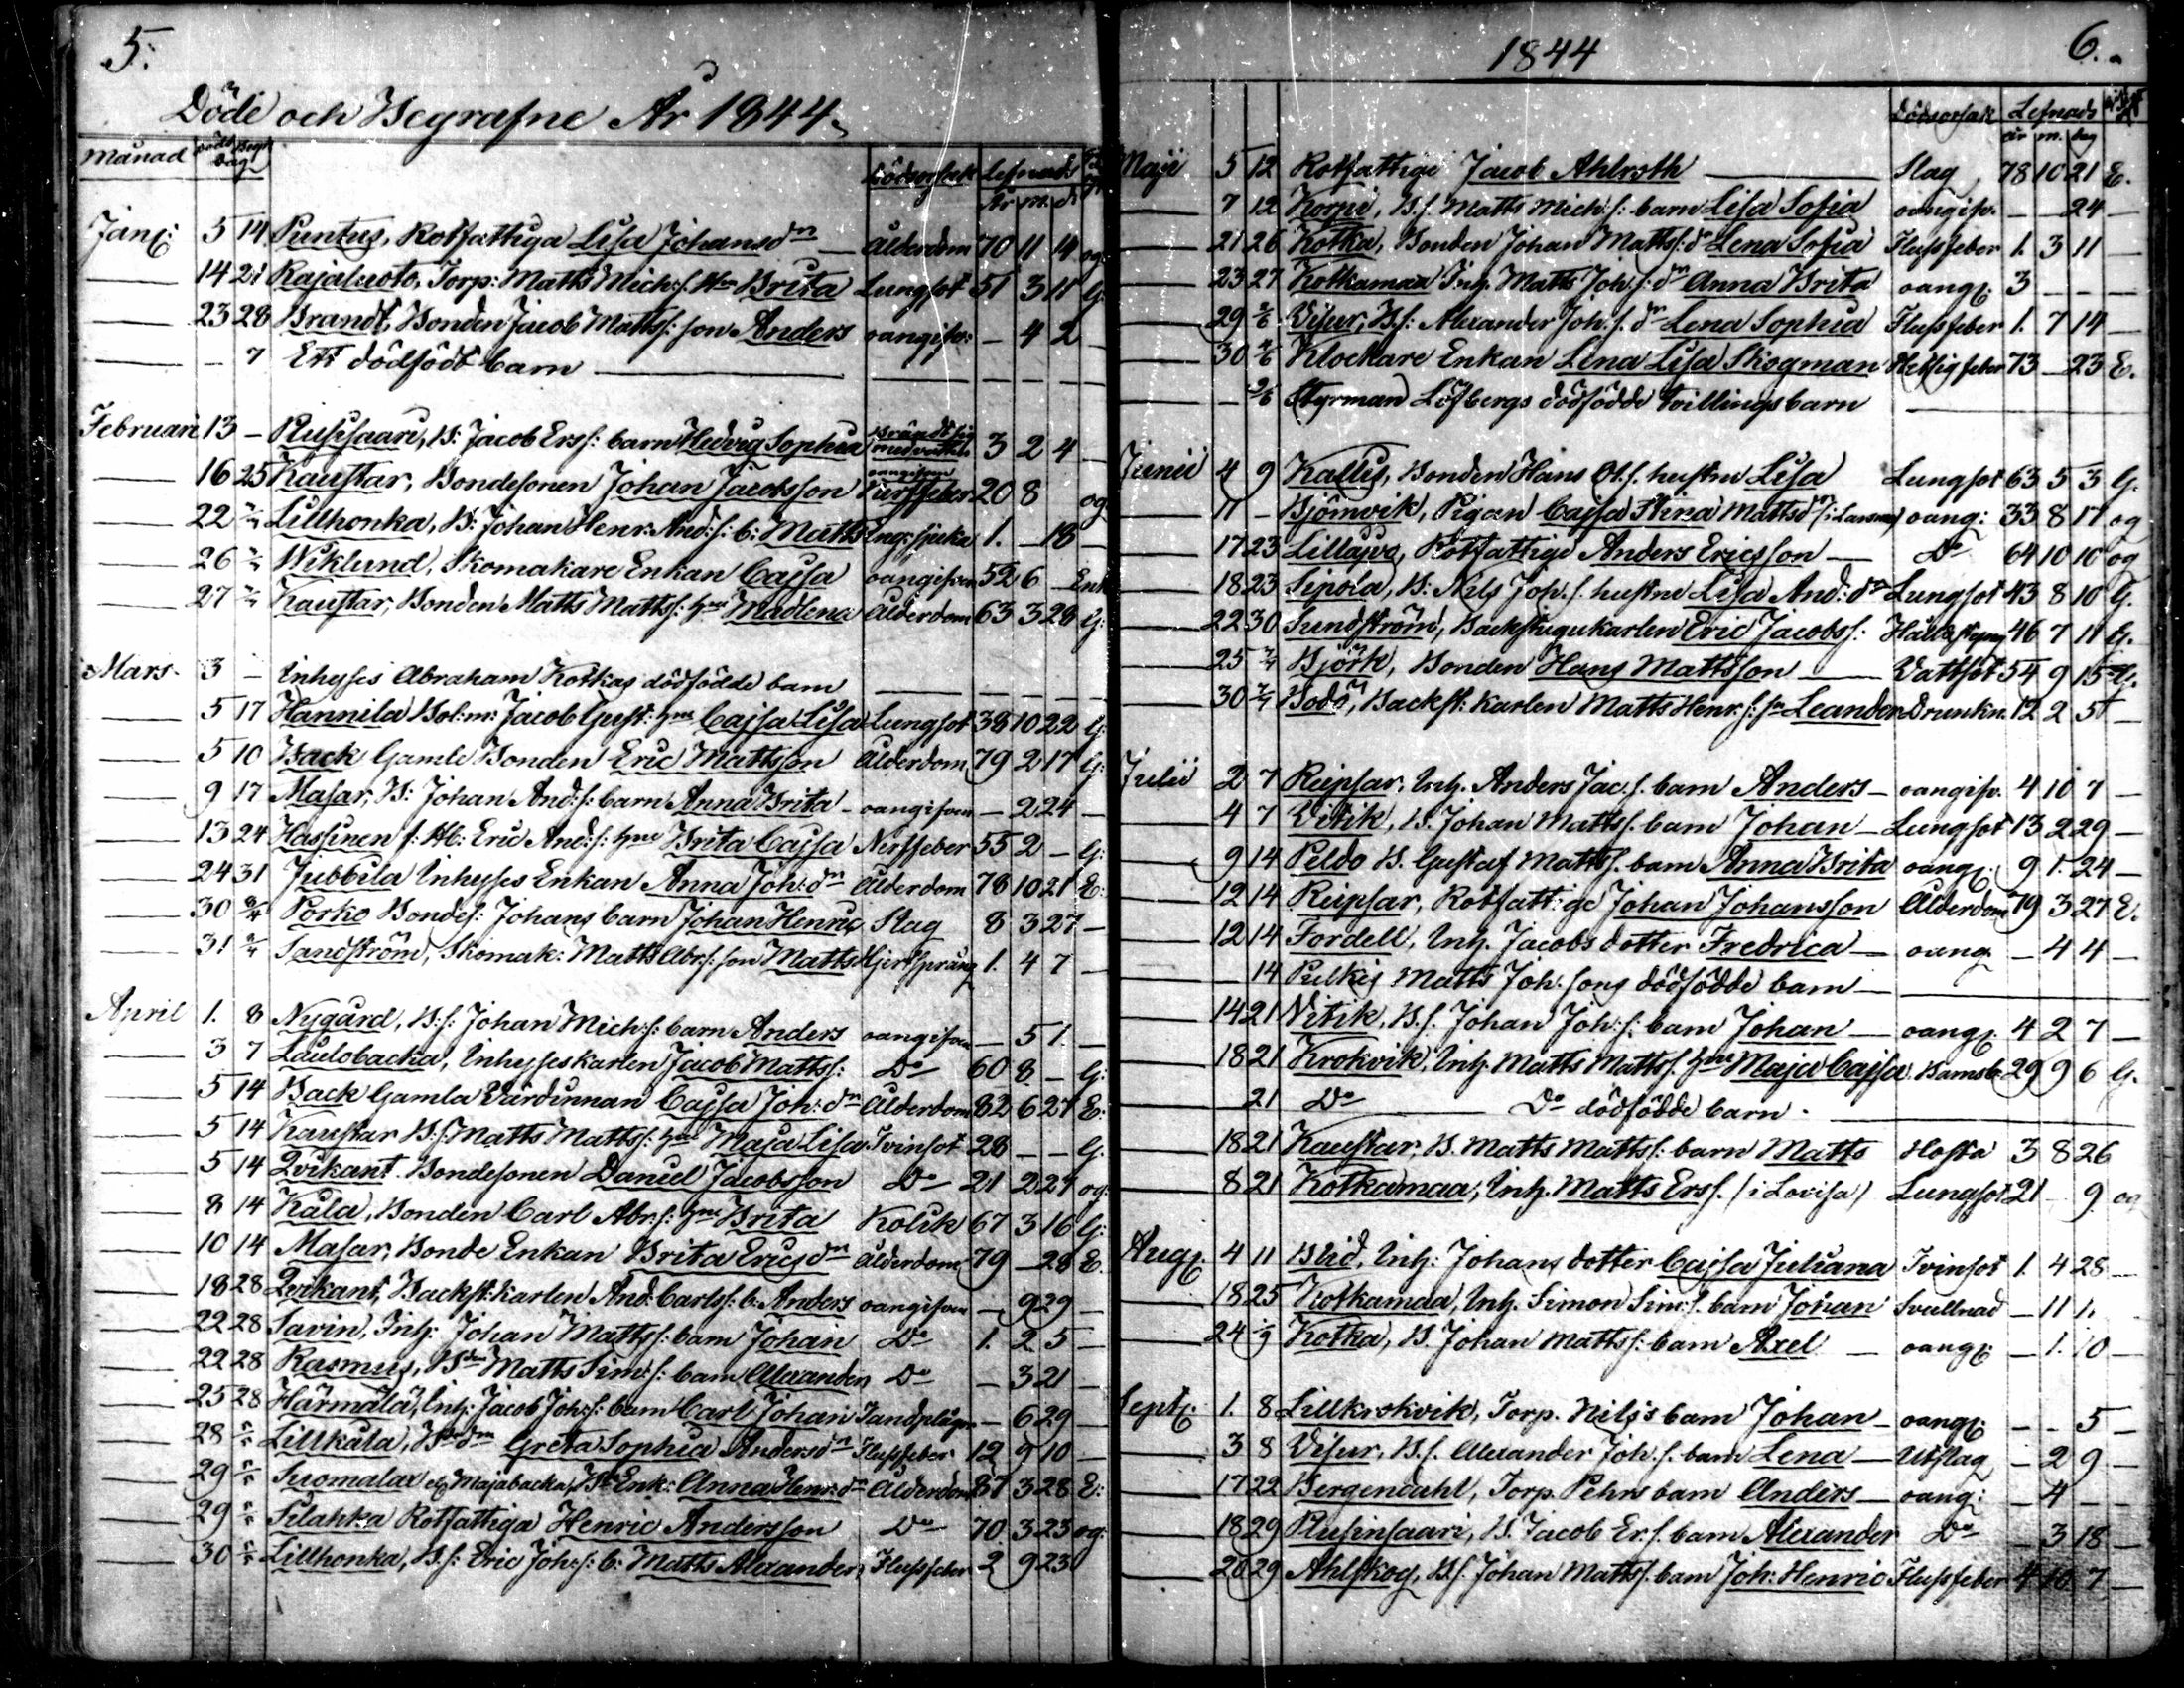 5.
Döde och Begrafne År 1844.
Månad Döds Begr. dag Dödsorsak Lefnads År m. d.
Janu: 5 14 Puntus, Rotfattiga Lisa Johansdr Ålderdom 70 11 11 og:
14 21 Rajaluoto, Torp: Matts Mich:s. Hu Brita Lungsot 51 3 11 G.
23 28 Brandt, Bonden Jacob Mattss: son Anders oangifv: — 4 2
— 7 Ett dödfödt barn
Februari 13 — Rusisaari, B: Jacob Erss: barn Hedvig Sophia 3 2 4 —
16 25 Kaustar, Bondesonen Johan Jacobsson 20 8 og
22 Lillhonka, B: Johan Henr. And:s: b: Matts Eng: sjuka 1. — 18 —
26 Wiklund, Skomakare Enkan Cajsa oangifven 52 6 — Enk
27 Kaustar, Bonden Matts Mattss: hu Madlena Ålderdom 63 3 28 G:
Mars 3 — Inhyses Abraham Kotkas dödfödde barn
5 17 Hannila Bol:m: Jacob Gust: hu Cajsa Lisa Lungsot 38 10 22 G:
5 10 Back Gamle Bonden Eric Mattsson Ålderdom 79 2 17 G:
9 17 Masar, B: Johan And:s: barn Anna Brita — oangifven — 2 24 —
13 24 Hassinen s: Hb: Eric And:s: hu Brita Cajsa Nerffeber 55 2 — G:
24 31 Jubbila Inhyses Enkan Anna Joh:dr Ålderdom 78 10 21 E:
30 Porko Bondes: Johans barn Johan Henric Slag 8 3 27 —
31 Sandström, Skomak: Matts Abr:s: son Matts Hjertsprång 1. 4 7 —
April 1. 8 Nygård, B:s: Johan Mich:s: barn Anders oangifven — 5 1. —
3 7 Laulobacka, Inhyseskarlen Jacob Mattss: Do 60 8 — G:
5 14 Back Gamla Värdinnan Cajsa Joh:dr Ålderdom 82 6 27 E:
5 14 Kaustar B:s: Matts Mattss: hu Maja Lisa Tvinsot 28 — — G.
5 14 Qvikant Bondesonen Daniel Jacobsson Do 21 2 27 og:
8 14 Kåla, Bonden Carl Abr:s: hu Brita Kolik 67 3 16 G:
10 14 Masar, Bonde Enkan Brita Ericsdr Ålderdom 79 — 28 E.
18 28 Qvikant, Backst:karlen And. Carlss: b: Anders oangifven — 9 29 —
22 28 Savin, Inh: Johan Mattss: barn Johan Do 1. 2 5 —
22 28 Rasmus, Bden Matts Sim:s: barn Alexander Do — 3 21 —
25 28 Härmälä, Inh: Jacob Joh:s: barn Carl Johan Tandplågor — 6 29 —
28 Lillkåla, Greta Sophia Andersdr Flussfeber 12 9 10 —
29 Suomalax Majabacka, Enk: Anna Henr:dr Ålderdom 87 3 28 E:
29 Pilahka Rotfattiga Henric Andersson Do 70. 3 23 og:
30 Lillhonka, B.s: Eric Joh:s: b: Matts Alexander, Flussfeber 2 9 23
1844
6.
Dödsorsak Lefnads år m. dag
Maji 5 12 Rotfattige Jacob Ahlroth Slag 78 10 21 E.
7 12 Korpi, B.s. Matts Mich:s: barn Lisa Sofia oangifv. — — 24 —
21 26 Kotka, Bonden Johan Mattss: dr Lena Sofia Flussfeber 1. 3 11 —
23 27 Kotkamaa Inh. Matts Joh:s: dr Anna Brita oang: 3 — — —
29 2/6 Visur, B.s: Alexander Joh.s. dr Lena Sophia Flussfeber 1. 7 14 —
30 2/6 Klockare Enkan Lena Lisa Skogman Hetsigfeber 73 — 23 E.
— 2/6 Styrman Löfbergs dödfödde tvillingsbarn
Junii 4 9 Kallis, Bonden Hans Ol.s. hustru Lisa Lungsot 63 5 3 G.
11 — Björnvik, Pigan Cajsa Stina Mattsdr (i Larsmo) oang: 33 8 17 og
17 23 Lillåjvo, Rotfattige Anders Ericsson — Do 64 10 10 og
18 23 Sipola, B: Nils Joh.s. hustru Lisa And:dr Lungsot 43 8 10 G.
22 30 Sundström, Backstugukarlen Eric Jacobss: Håll & styng 46 7 11 G.
25 Björk, Bonden Hans Mattsson Vattsot 54 9 15 G.
30 Bodö, Backst: karlen Matts Henr:s: sn Leander Drunkn. 12 2 5 —
Julii 2 7 Reipsar, Inh. Anders Jac.s. barn Anders — oangifv. 4 10 7 —
4 7 Vitik, B. Johan Mattss. barn Johan — Lungsot 13 2 29 —
9 14 Peldo B. Gustaf Mattss. barn Anna Brita oang: 9 1. 24 —
12 14 Reipsar, Rotfattige Johan Johansson Ålderdom 79 3 27 E.
12 14 Fordell, Inh. Jacobs dotter Fredrica — oang — 4 4 —
— 14 Pulkis Matts Joh.sons dödfödde barn
14 21 Vitik, B.s. Johan Joh:s: barn Johan — oang: 4 2 7 —
18 21 Krokvik, Inh. Matts Mattss. hu Maja Cajsa Barnsb. 29 9 6 G.
21 Do Do dödfödde barn.
18 21 Kaustar, B. Matts Mattss: barn Matts Hosta 3 8 26
8 21 Kotkamaa, Inh. Matts Erss. (i Lovisa) Lungsot 21 — 9 og
Aug: 4 11 Blid, Inh: Johans dotter Cajsa Juliana Tvinsot 1. 4 28 —
18 25 Kotkamaa, Inh. Simon Sim:s. barn Johan Svullnad — 11 1.
24 1/9 Kotka, B. Johan Mattss: barn Axel — oang: — 1. 10 —
Sept: 1. 8 Lillkrokvik, Torp. Nils's barn Johan — oang: — — 5 —
3 8 Visur, B.s. Alexander Joh.s. barn Lena — Utslag — 2 9 —
17 22 Bergendahl, Torp. Pehrs barn Anders — oang: — 4 — —
18 29 Rusinsaari, B. Jacob Er.s. barn Alexander Do — 3 18 —
20 29 Ahlskog, B.s. Johan Mattss. barn Joh: Henric Flussfeber 4 10 7 —